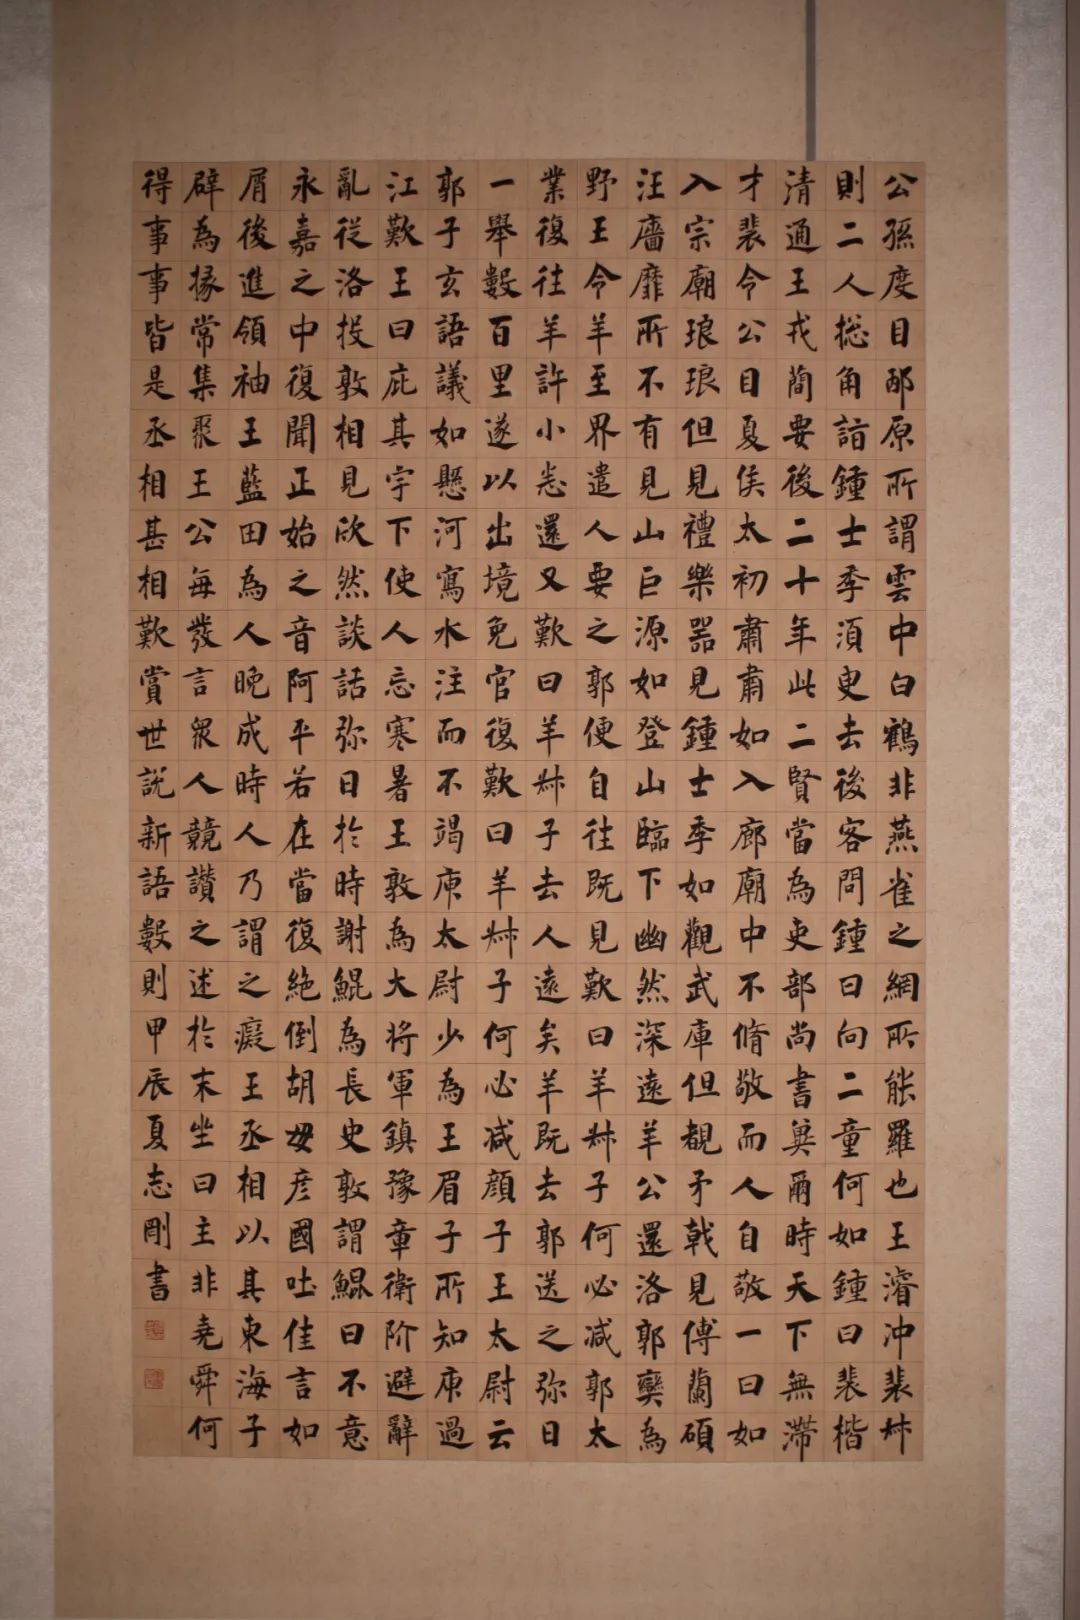 公孫度目邴原所謂雲中白鶴非燕雀之網所能羅也王濬沖裴叔
則二人揔角詣鍾士季須臾去後客問鍾曰向二童何如鍾曰裴楷
清通王戎蕳要後二十年此二賢當為吏部尚書兾爾時天下無滯
才裴令公目夏侯太初肅肅如入廊廟中不脩敬而人自敬一曰如
入宗廟琅琅但見禮樂器見鍾士季如觀武庫但覩矛戟見傅蘭碩
汪廧靡所不有見山巨源如登山臨下幽然深遠羊公還洛郭奕為
野王令羊至界遣人要之郭便自往既見歎曰羊叔子何必減郭太
業復往羊許小悉還又歎曰羊叔子去人遠矣羊既去郭送之弥日
一舉數百里遂以出境免官復歎曰羊叔子何必減顔子王太尉云
郭子玄語議如懸河寫水注而不竭庾太尉少為王眉子所知庾過
江歎王曰庇其宇下使人忘寒暑王敦為大將軍鎮豫章衛玠避
亂從洛投敦相見欣然談話弥日於時謝鯤為長史敦謂鯤曰不意
永嘉之中復聞正始之音阿平若在當復絶倒胡毋彦國吐佳言如
屑後進領袖王藍田為人晚成時人乃謂之癡王丞相以其東海子
辟為掾常集聚王公每發言衆人競讃之述於末坐曰主非堯舜何
得事事皆是丞相甚相歎賞世説新語數則甲辰夏志剛書